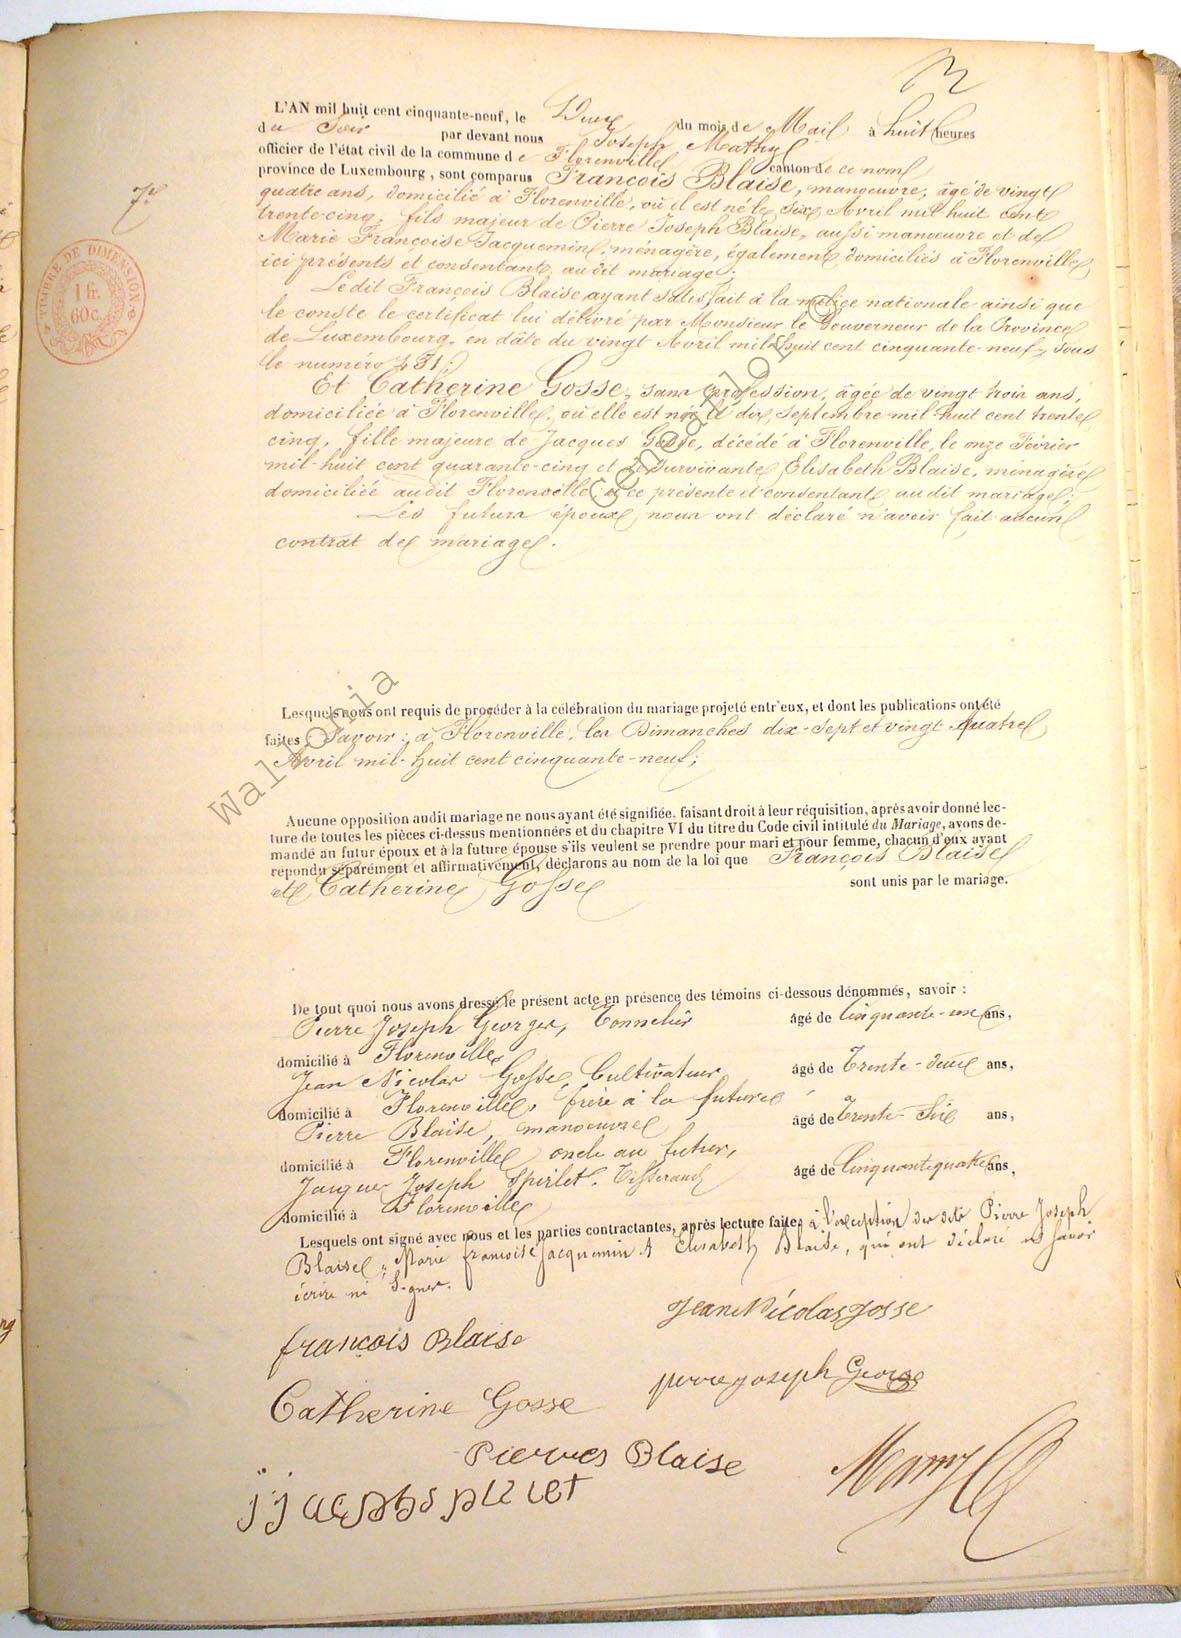 L'AN mil huit cent cinquante-neuf, le Deux du mois de Mai, à huit heures
du Soir par devant nous Joseph Mathys
officier de l'état civil de la commune de Florenville canton de ce nom
province de Luxembourg, sont comparus François Blaise, manoeuvre, âgé de vingt
quatre ans, domicilié à Florenville, où il est né le six Avril mil huit cent
trente-cinq, fils majeur de Pierre Joseph Blaise, aussi manoeuvre et de
Marie Françoise Jacquemin, ménagère, également domiciliés à Florenville,
ici présents et consentant audit mariage;
Ledit François Blaise ayant satisfait à la milice nationale ainsi que
le conste le certificat lui délivré par Monsieur le Gouverneur de la Province
de Luxembourg, en dâte du vingt Avril mil-huit cent cinquante-neuf, sous
le numéro 431;
Et Catherine Gosse, sans profession, âgée de vingt trois ans,
domiciliée à Florenville, où elle est née le dix Septembre mil-huit cent trente
cinq, fille majeure de Jacques Gosse, décédé à Florenville, le onze Février
mil-huit cent quarante-cinq et de survivante Elisabeth Blaise, ménagère
domiciliée audit Florenville, à ce présente et consentant audit mariage;
Les futurs époux nous ont déclaré n'avoir fait aucun
contrat de mariage.
7.
TIMBRE DE DIMENSION
1 fr.
60 c.
Wallonia Genealogy ©
Lesquels nous ont requis de procéder à la célébration du mariage projeté entr'eux, et dont les publications ont été
faites Savoir: à Florenville, les Dimanches dix-sept et vingt-quatre
Avril mil-huit cent cinquante-neuf;
Aucune opposition audit mariage ne nous ayant été signifiée, faisant droit à leur réquisition, après avoir donné lec-
ture de toutes les pièces ci-dessus mentionnées et du chapitre VI du titre du Code civil intitulé du Mariage, avons de-
mandé au futur époux et à la future épouse s'ils veulent se prendre pour mari et pour femme, chacun d'eux ayant
répondu séparément et affirmativement, déclarons au nom de la loi que François Blaise
et Catherine Gosse sont unis par le mariage.
De tout quoi nous avons dressé le présent acte en présence des témoins ci-dessous dénommés, savoir :
Pierre Joseph Georges, Tonnelier âgé de Cinquante-un ans,
domicilié à Florenville
Jean Nicolas Gosse, Cultivateur âgé de Trente-deux ans,
domicilié à Florenville, frère à la future
Pierre Blaise, manoeuvre âgé de Trente-Six ans,
domicilié à Florenville oncle au futur,
Jacques Joseph Spirlet, Tisserand âgé de Cinquante quatre ans,
domicilié à Florenville
Lesquels ont signé avec nous et les parties contractantes, après lecture faite, à l'exception des dits Pierre Joseph
Blaise, Marie françoise Jacquemin & Elisabeth Blaise, qui ont déclaré ne savoir
écrire ni Signer.
françois Blaise
Jean Nicolas gosse
pierre joseph George
Catherine Gosse
Pierres Blaise